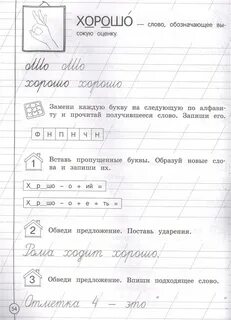 ХОРОШО́ — слово, обозначающее вы-
сокую оценку.
оШо оШо
хорошо хорошо
Замени каждую букву на следующую по алфави-
ту и прочитай получившееся слово. Запиши его.
Ф Н П Н Ч Н
1 Вставь пропущенные буквы. Образуй новые сло-
ва и запиши их.
Х_р_шо – о + ий =
Х_р_шо – о + е * ть =
2 Обведи предложение. Поставь ударения.
Рома ходит хорошо.
3 Обведи предложение. Впиши подходящее слово.
Отметка 4 – это " "
54